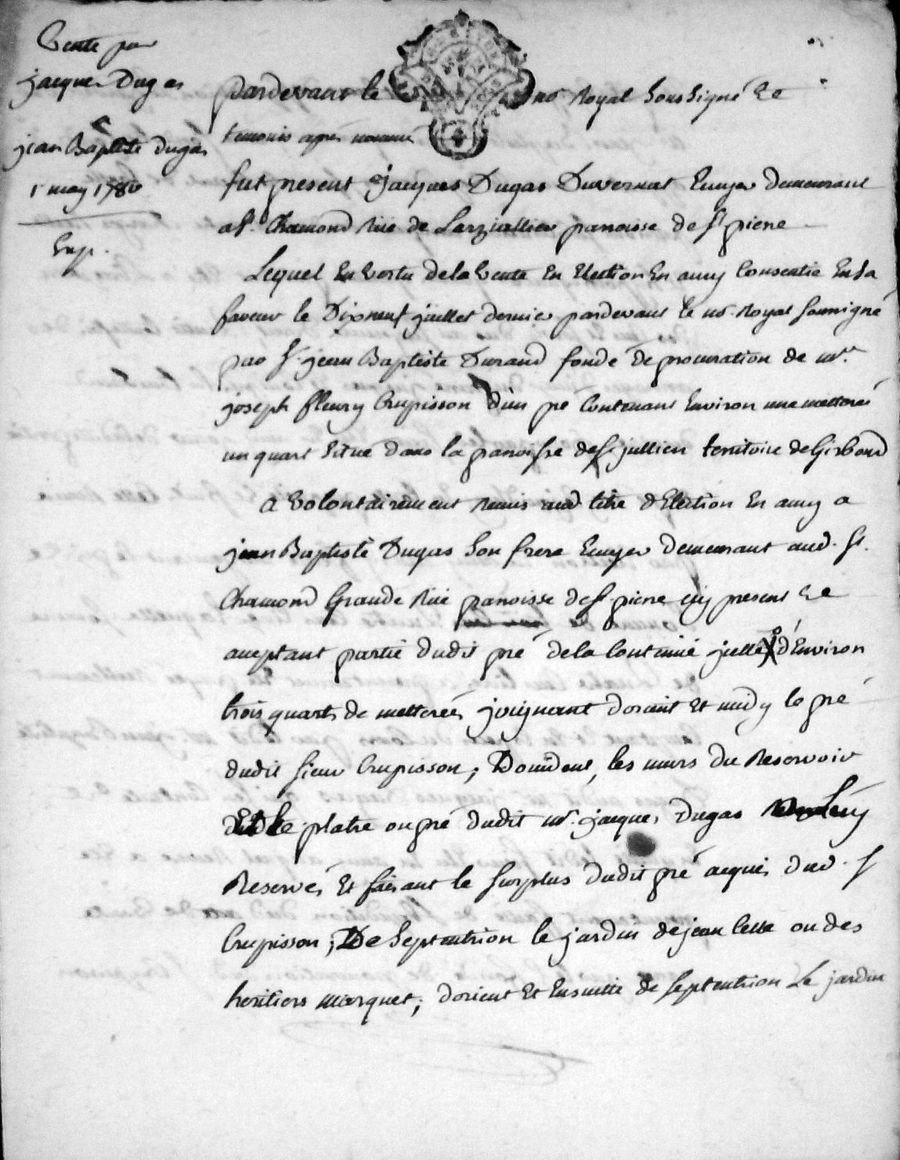 Vente par
jacques Dugas
a
jean Baptiste dugas
1r may 178
Exp.
pardevant le no.re Royal Soussigné Et
temoins aprés nommés
fut present jacques Dugas Duvernat Ecuyer demeurant
a St. Chamond Rüe de paroisse de St pierre
Lequel En vertu de la Vente En Election En amy Consentie En sa
faveur le Dixneuf juillet dernier pardevant le no.re Royal soussigné
par Sr. jean Baptiste Durand fondé de procuration de Mr.
joseph fleury Crupisson d'un pré Contenant Environ une metterée
un quart situé dans la paroisse de St jullien territoire de
a Volontairement Remis aud titre d'Election En amy a
jean Baptiste Dugas Son frere Ecuyer demeurant aud. St.
Chamond Grande Rüe paroisse de St pierre icy present Et
aceptant partie dudit pré de la Contenüe d'Environ
trois quarts de metterée, joignant dorient Et midy le pré
dudit Sieur Crupisson; Doccident, les murs du Reservoir
Et le platre ou pré dudit Mr. jacques Dugas
Reservés Et faisant le surplus dudit pré acquis dud. Sr
Crupisson; De Septentrion le jardin de jean ou des
heritiers marquet; dorient Et Ensuitte de septentrion Le jardin